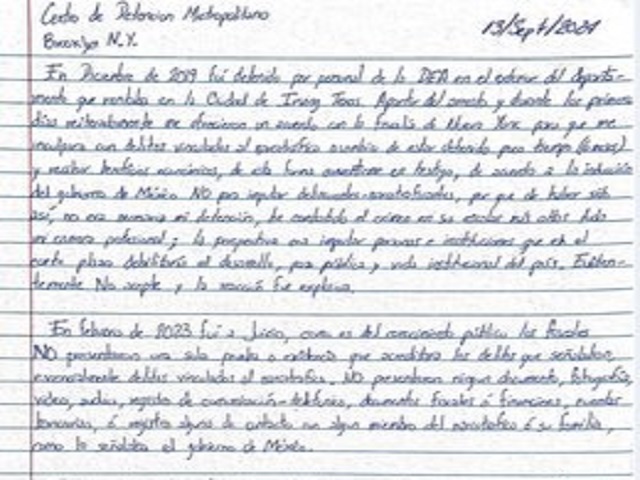 Centro de Detencion Metropolitano
13/Sept/2024
Brooklyn N.Y.
En Diciembre de 2019 fuí detenido por personal de la DEA en el exterior del departa-
mento que rentaba en la Ciudad de Irving Texas. Apartir del arresto y durante los primeros
días reiteradamente me ofrecieron un acuerdo con la fiscalía de Nueva York para que me
inculpara con delitos vinculados al narcotráfico a cambio de estar detenido poco tiempo (6 meses)
y recibir beneficios económicos, de esta forma convertirme en testigo, de acuerdo a la
del gobierno de México NO para imputar delincuentes-narcotraficantes, por que de haber sido
así, no era necesaria mi detención, he combatido al crimen en su escalar mas altos toda
mi carrera profesional; la perspectiva era imputar personas e instituciones que en el
corto plazo debilitaría el desarrollo, paz pública y vida institucional del país. Eviden-
temente No acepte y la reacción fue explosiva.
En febrero de 2023 fuí a Juicio, como es del conocimiento público los fiscales
NO presentaron una sola prueba o evidencia que acreditara los delitos que señalaban,
esencialmente delitos vinculados al narcotrafico. NO presentaron ningun documento, fotografía,
video, audio, registro de comunicación-telefonica, documentos fiscales ó financieros, cuentas
bancarias, ó registro alguno de contacto con algun miembro del narcotrafico ó su familia,
como lo señalaba el gobierno de México.